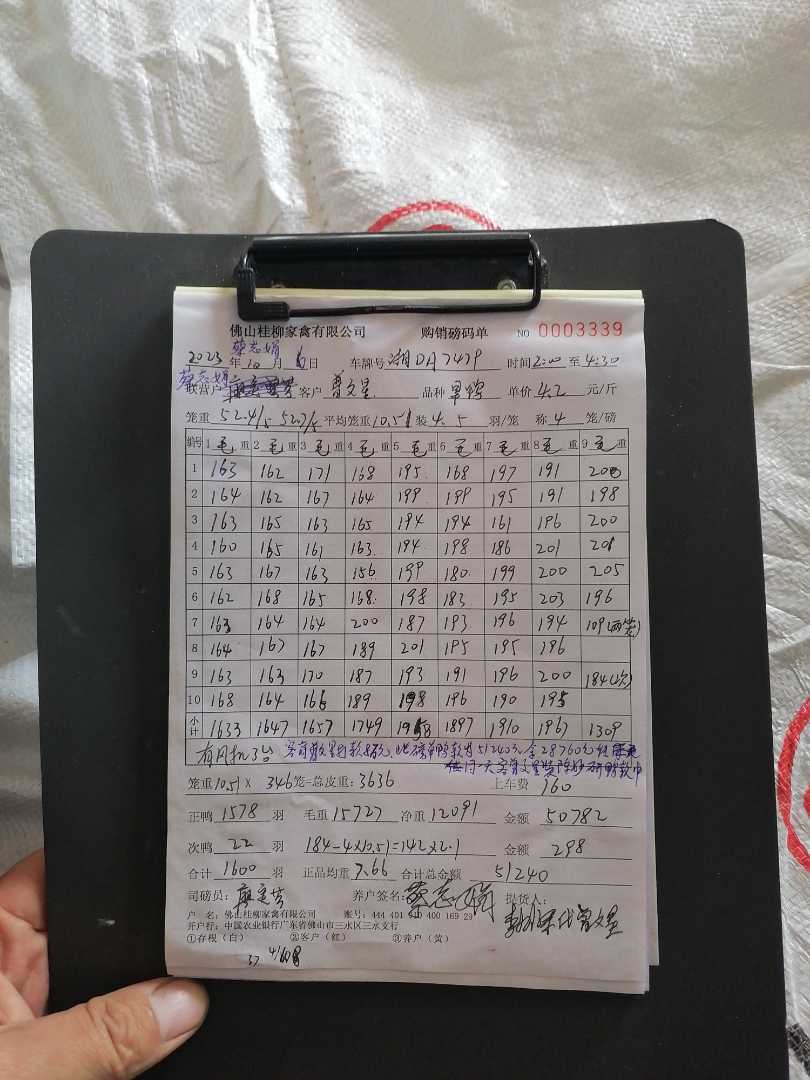 佛山桂柳家禽有限公司 购销磅码单 NO 0003339
蔡志娟
2023 年 10 月 6 日 车牌号 湘DA7479 时间 2:00 至 4:30
蔡志娟
联营户 客户 曾文星 品种 单价 4.2 元/斤
笼重 52.4/5 52.7/5 平均笼重 10.51 装 4.5 羽/笼 称 4 笼/磅
编号 1 毛 重 2 毛 重 3 毛 重 4 毛 重 5 毛 重 6 毛 重 7 毛 重 8 毛 重 9 毛 重
1 163 162 171 168 195 168 197 191 200
2 164 162 167 164 199 199 195 191 198
3 163 165 163 165 194 194 161 196 200
4 160 165 161 163 194 198 186 201 201
5 163 167 163 156 199 180 199 200 205
6 162 168 165 168 198 183 195 203 196
7 163 164 164 200 187 193 196 194 109(两笼)
8 164 167 167 189 201 195 195 196
9 163 163 170 187 193 191 196 200 184(次)
10 168 164 166 189 198 196 190 195
小计 1633 1647 1657 1749 1958 1897 1910 1967 1309
有风机3台
笼重 10.51 × 346 笼=总皮重: 3636 上车费 760
正鸭 1578 羽 毛重 15727 净重 12091 金额 50782
次鸭 22 羽 184-4×10.51=142×2.1 金额 298
合计 1600 羽 正品均重 7.66 合计总金额 51240
司磅员: 养户签名: 蔡志娟 提货人:
代曾文星
户 名: 佛山桂柳家禽有限公司 账号: 444 401 400 169 29
开户行: 中国农业银行广东省佛山市三水区三水支行
①存根（白） ②客户（红） ③养户（黄）